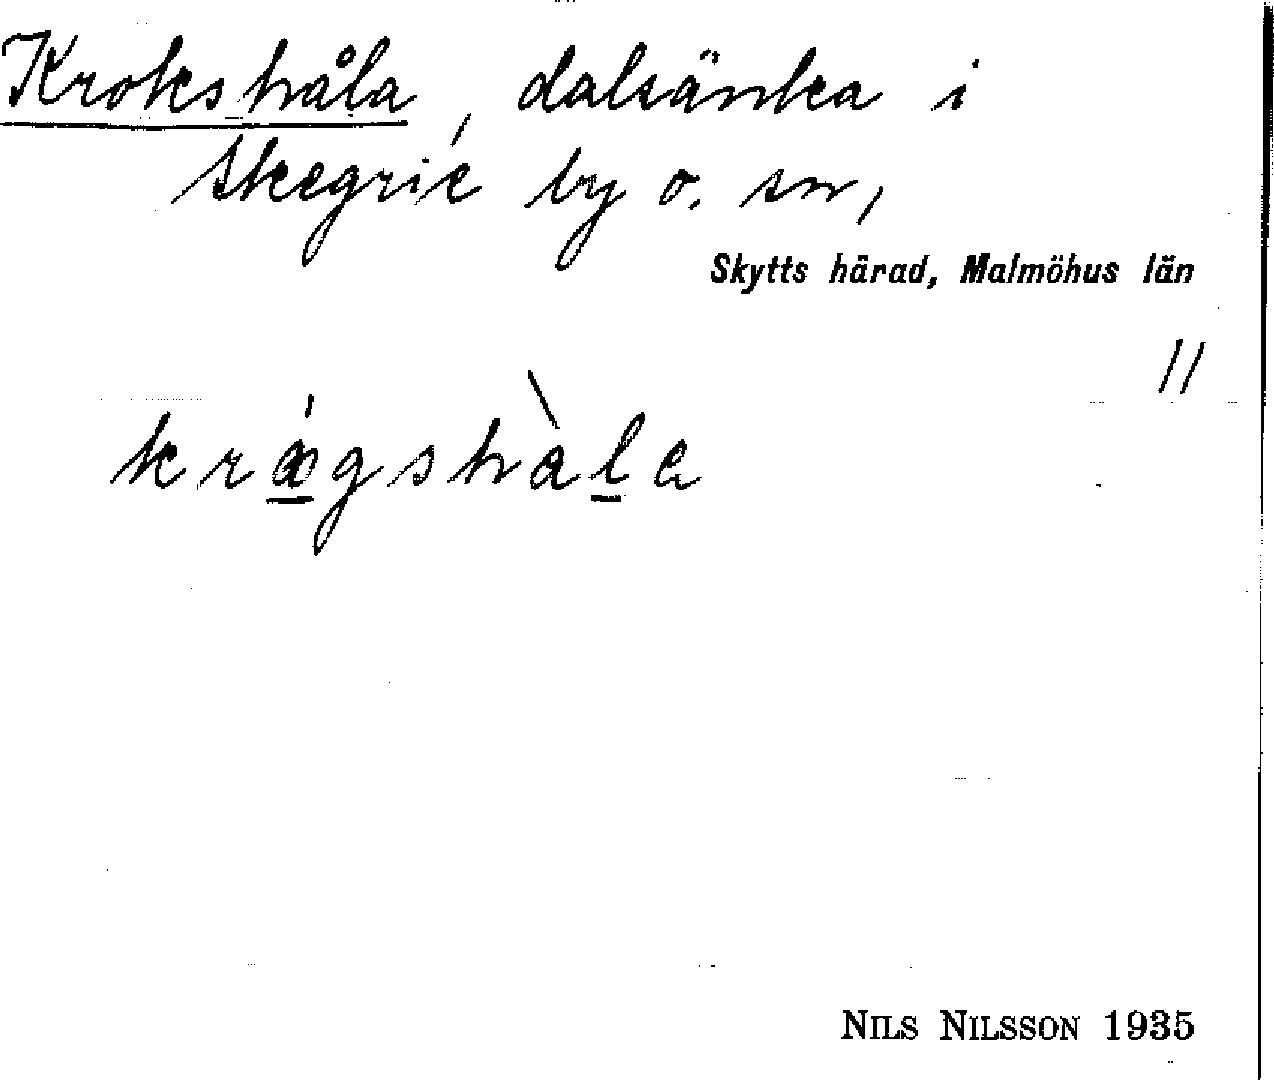 Krokshåla, dalsänka i
Skegrie by o. sn,
Skytts härad, Malmöhus län
11
NILS NILSSON 1935